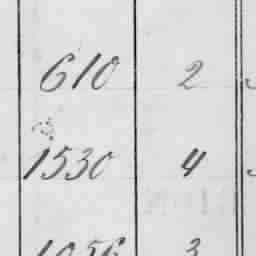 610 2
1530 4
1056 3